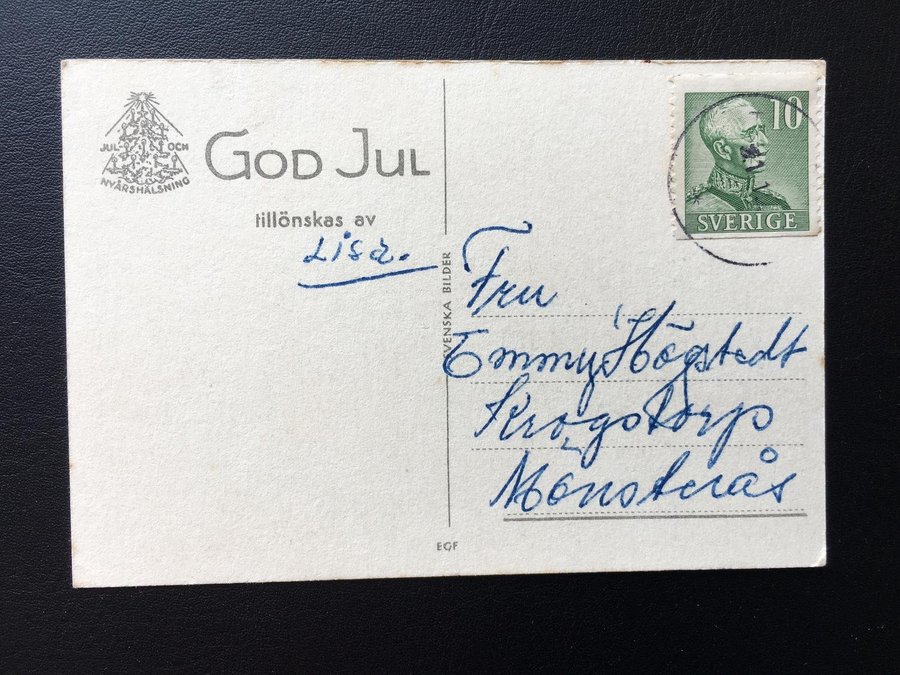 JUL OCH
NYÅRSHÄLSNING
GOD JUL
tillönskas av
Lisa.
SVENSKA BILDER
EGF
10
SVERIGE
Fru
Emmy Högstedt
Krogstorp
Mönsterås